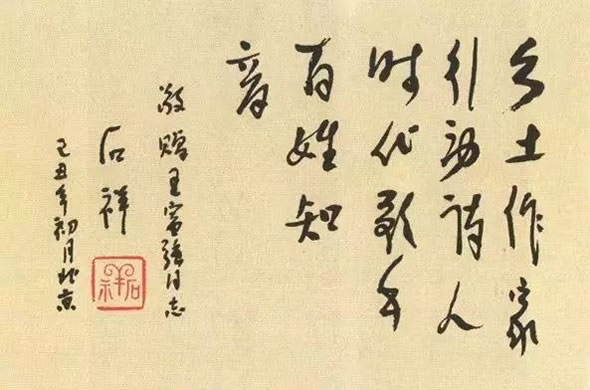 乡土作家
引动诗人
时代歌手
百姓知
音
敬赠王富强同志
石祥
己丑年初月北京
石祥